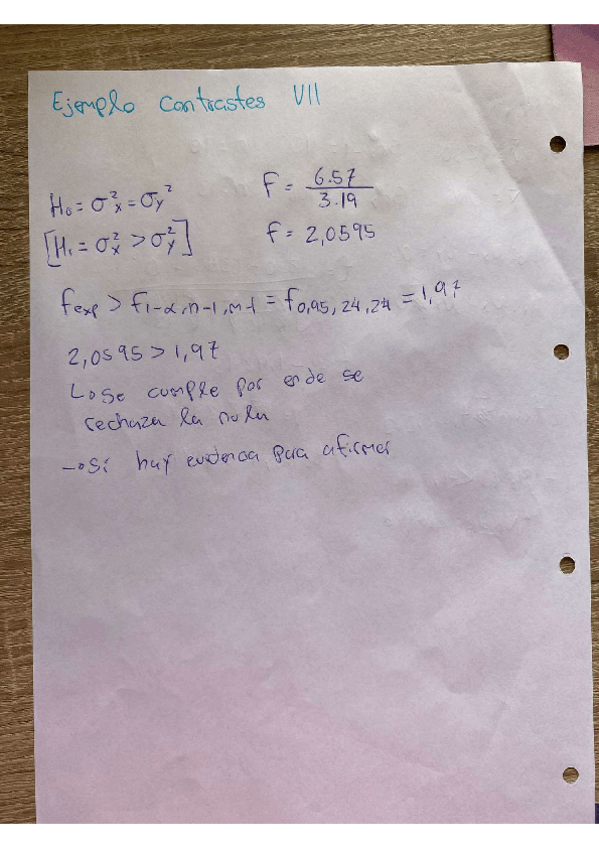 Ejemplo Contrastes VII
H₀ = σ²x = σy²
[H₁ = σ²x > σ²y]
F = 6.57 / 3.19
f = 2,0595
fexp > f1-α, n-1, m-1 = f0,95, 24, 24 = 1,97
2,0595 > 1,97
↳ Se cumple por ende se
rechaza la nula
→ Sí hay evidencia para afirmar